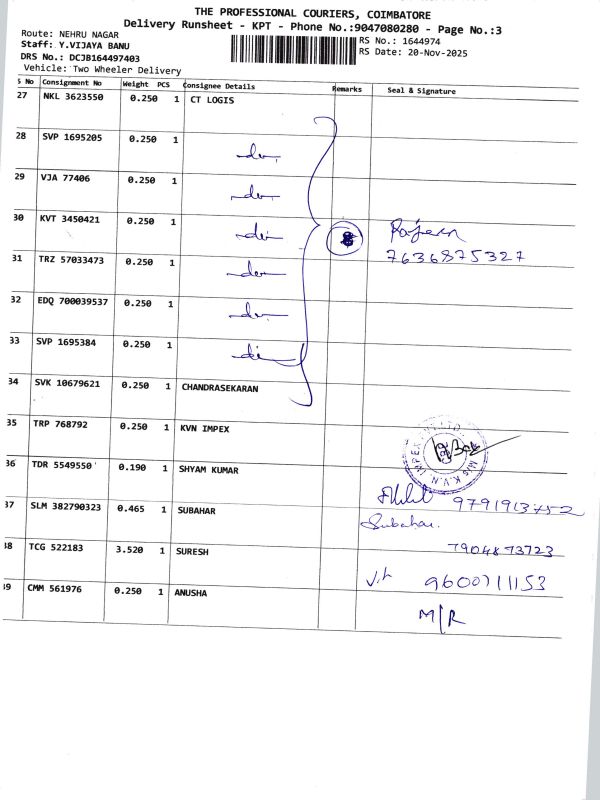 THE PROFESSIONAL COURIERS, COIMBATORE
Delivery Runsheet - KPT - Phone No.:9047080280 - Page No.:3
Route: NEHRU NAGAR
Staff: Y.VIJAYA BANU
DRS No.: DCJB164497403
Vehicle: Two Wheeler Delivery
RS No.: 1644974
RS Date: 20-Nov-2025
S No Consignment No Weight PCS Consignee Details Remarks Seal & Signature
27 NKL 3623550 0.250 1 CT LOGIS
28 SVP 1695205 0.250 1
29 VJA 77406 0.250 1
30 KVT 3450421 0.250 1
7636875327
31 TRZ 57033473 0.250 1
32 EDQ 700039537 0.250 1
33 SVP 1695384 0.250 1
34 SVK 10679621 0.250 1 CHANDRASEKARAN
35 TRP 768792 0.250 1 KVN IMPEX
36 TDR 5549550 0.190 1 SHYAM KUMAR
9791913752
37 SLM 382790323 0.465 1 SUBAHAR
Subahar.
7904873723
38 TCG 522183 3.520 1 SURESH
9600711153
39 CMM 561976 0.250 1 ANUSHA
M/R